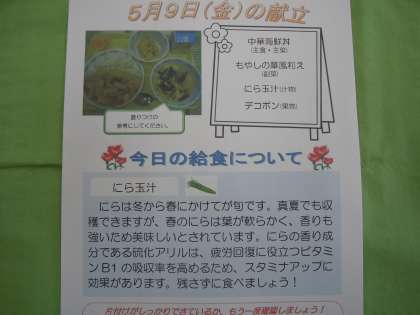 5月9日(金)の献立
中華海鮮丼
(主食・主菜)
もやしの華風和え
(副菜)
にら玉汁(汁物)
デコポン(果物)
盛りつけの
参考にしてください。
今日の給食について
にら玉汁
にらは冬から春にかけてが旬です。真夏でも収
穫できますが、春のにらは葉が軟らかく、香りも
強いため美味しいとされています。にらの香り成
分である硫化アリルは、疲労回復に役立つビタミ
ンB1の吸収率を高めるため、スタミナアップに
効果があります。残さずに食べましょう!
片付けがしっかりできているか、もう一度確認しましょう!